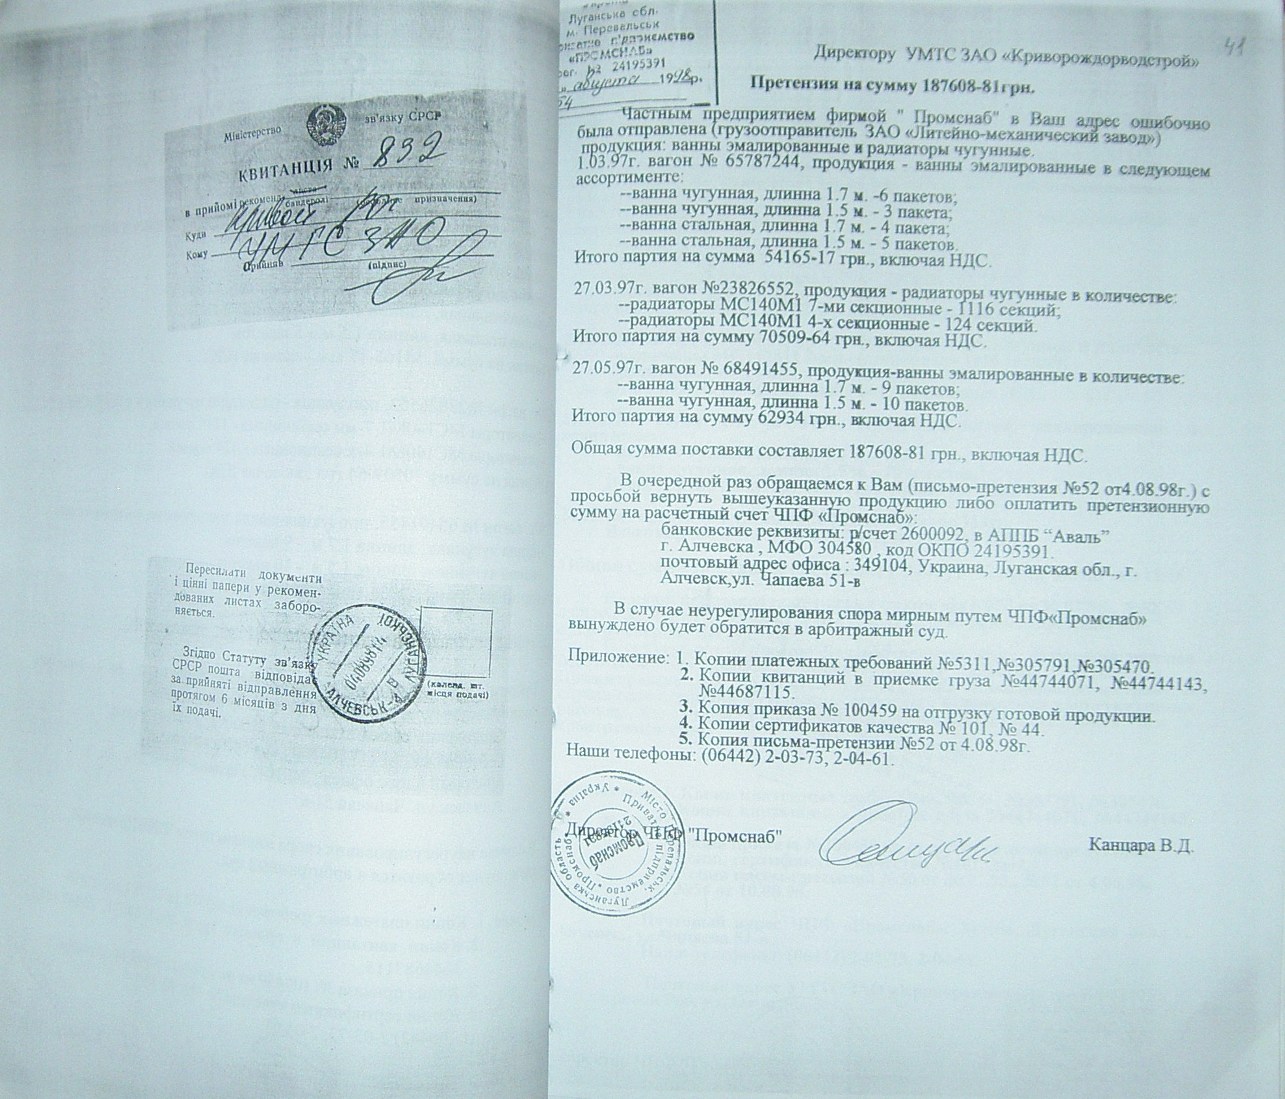 Міністерство зв'язку СРСР
КВИТАНЦІЯ № 832
в прийомі рекоменд.
(бандеролі) призначення)
Куди Кривой Рог
Кому УМТС ЗАО
Прийняв
(підпис)
Пересилати документи
і цінні папери у рекомен-
дованих листах заборо-
няється.
Згідно Статуту зв'язку
СРСР пошта відповідає
за прийняті відправлення
протягом 6 місяців з дня
їх подачі.
УКРАЇНА
АЛЧЕВСЬК
(календ. шт.
місця подачі)
Луганська обл.
м. Перевальськ
«ПРОМСНАБ»
24195391
августа 1998р.
54
41
Директору УМТС ЗАО «Криворождорводстрой»
Претензия на сумму 187608-81грн.
Частным предприятием фирмой " Промснаб" в Ваш адрес ошибочно
была отправлена (грузоотправитель ЗАО «Литейно-механический завод»)
продукция: ванны эмалированные и радиаторы чугунные.
1.03.97г. вагон № 65787244, продукция - ванны эмалированные в следующем
ассортименте:
--ванна чугунная, длинна 1.7 м. -6 пакетов;
--ванна чугунная, длинна 1.5 м. - 3 пакета;
--ванна стальная, длинна 1.7 м. - 4 пакета;
--ванна стальная, длинна 1.5 м. - 5 пакетов.
Итого партия на сумма 54165-17 грн., включая НДС.
27.03.97г. вагон №23826552, продукция - радиаторы чугунные в количестве:
--радиаторы МС140М1 7-ми секционные - 1116 секций;
--радиаторы МС140М1 4-х секционные - 124 секций.
Итого партия на сумму 70509-64 грн., включая НДС.
27.05.97г. вагон № 68491455, продукция-ванны эмалированные в количестве:
--ванна чугунная, длинна 1.7 м. - 9 пакетов;
--ванна чугунная, длинна 1.5 м. - 10 пакетов.
Итого партия на сумму 62934 грн., включая НДС.
Общая сумма поставки составляет 187608-81 грн., включая НДС.
В очередной раз обращаемся к Вам (письмо-претензия №52 от4.08.98г.) с
просьбой вернуть вышеуказанную продукцию либо оплатить претензионную
сумму на расчетный счет ЧПФ «Промснаб»:
банковские реквизиты: р/счет 2600092, в АППБ “Аваль”
г. Алчевска , МФО 304580 , код ОКПО 24195391.
почтовый адрес офиса : 349104, Украина, Луганская обл., г.
Алчевск,ул. Чапаева 51-в
В случае неурегулирования спора мирным путем ЧПФ«Промснаб»
вынуждено будет обратится в арбитражный суд.
Приложение: 1. Копии платежных требований №5311,№305791,№305470.
2. Копии квитанций в приемке груза №44744071, №44744143,
№44687115.
3. Копия приказа № 100459 на отгрузку готовой продукции.
4. Копии сертификатов качества № 101, № 44.
5. Копия письма-претензии №52 от 4.08.98г.
Наши телефоны: (06442) 2-03-73, 2-04-61.
Директор ЧПФ "Промснаб"
Канцара В.Д.
Україна * Луганська область
Приватне підприємство "Промснаб"
Промснаб
24195391